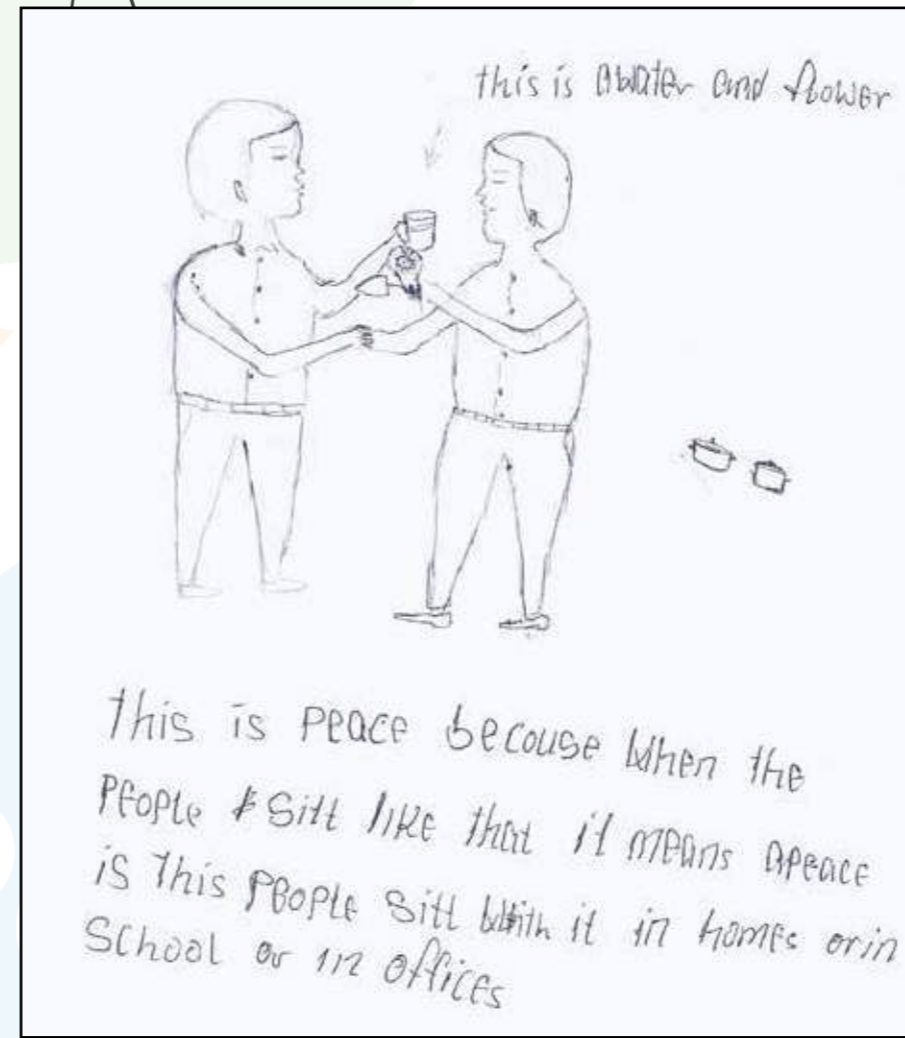 this is awater and flower
this is peace becouse when the
people sitt like that it means apeace
is this people sitt with it in homes orin
school or in offices